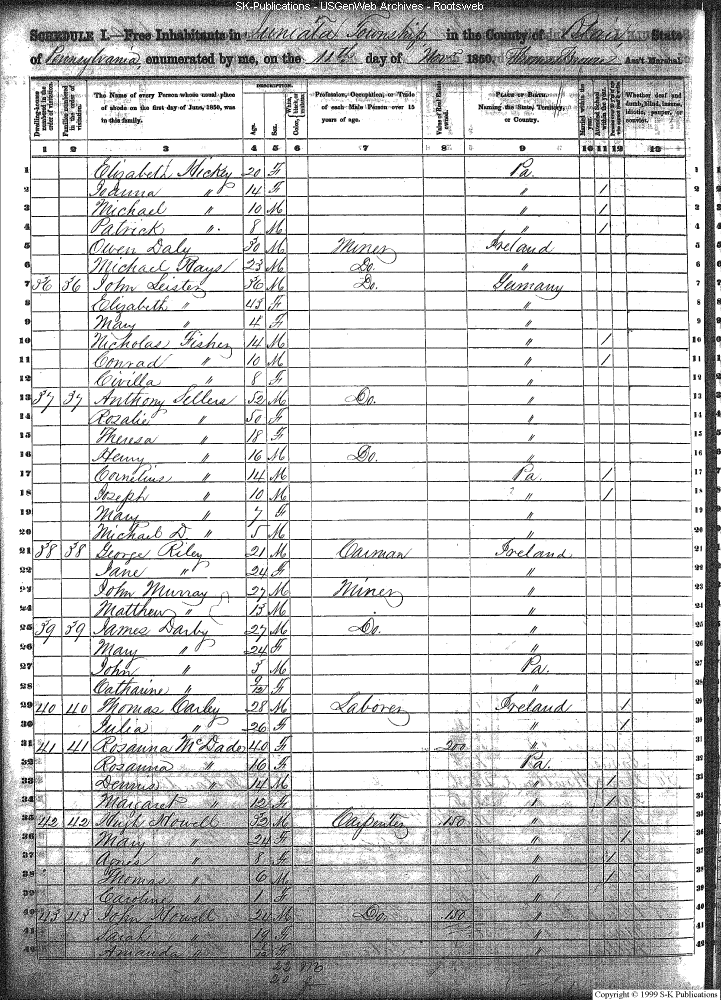 SK-Publications - USGenWeb Archives - Rootsweb
SCHEDULE I.—Free Inhabitants in Juniata Township in the County of Blair State
of Pennsylvania enumerated by me, on the 11th day of Novr 1850. Thomas Ass't Marshal.
Dwelling-houses numbered in the order of visitation.
Families numbered in the order of visitation.
The Name of every Person whose usual place of abode on the first day of June, 1850, was in this family.
DESCRIPTION.
Age.
Sex.
Color, White, black, or mulatto.
Profession, Occupation, or Trade of each Male Person over 15 years of age.
Value of Real Estate owned.
PLACE OF BIRTH. Naming the State, Territory, or Country.
Married within the year.
Attended School within the year.
Persons over 20 y'rs of age who cannot read & write.
Whether deaf and dumb, blind, insane, idiotic, pauper, or convict.
1 2 3 4 5 6 7 8 9 10 11 12 13
1 Elizabeth Hickey 20 F Pa. 1
2 " 14 F " 1 2
3 Michael " 10 M " 1 3
4 Patrick " 8 M " 1 4
5 Owen Daly 30 M Miner Ireland 5
6 Michael Hays 23 M Do. " 6
7 36 36 John Leister 36 M Do. Germany 7
8 Elizabeth " 43 F " 8
9 Mary " 4 F " 9
10 Nicholas Fisher 14 M " 1 10
11 Conrad " 10 M " 1 11
12 Civilla " 8 F " 12
13 37 37 Anthony Sellers 52 M Do. " 13
14 Rosalie " 50 F " 14
15 Theresa " 18 F " 15
16 Henry " 16 M Do. " 16
17 Cornelius " 14 M Pa. 1 17
18 Joseph " 10 M " 1 18
19 Mary " 7 F " 19
20 Michael D. " 5 M " 20
21 38 38 George Riley 21 M Carman Ireland 21
22 Jane " 24 F " 22
23 John Murray 27 M Miner " 23
24 Matthew " 13 M " 24
25 39 39 James Darby 27 M Do. " 25
26 Mary " 24 F " 26
27 John " 3 M Pa. 27
28 Catharine " 9/12 F " 28
29 40 40 Thomas Carley 28 M Laborer Ireland 1 29
30 Julia " 26 F " 1 30
31 41 41 Rosanna McDade 40 F 200 " 31
32 Rosanna " 16 F Pa. 32
33 Dennis " 14 M " 1 33
34 Margaret " 12 F " 1 34
35 42 42 Hugh Howell 32 M Carpenter 150 " 35
36 Mary " 24 F " 1 36
37 Agnes " 8 F " 1 37
38 Thomas " 6 M " 1 38
39 Caroline " 1 F " 39
40 43 43 John Howell 24 M Do. 150 " 40
41 Sarah " 19 F " 41
42 Amanda " F " 42
Copyright © 1999 S-K Publications